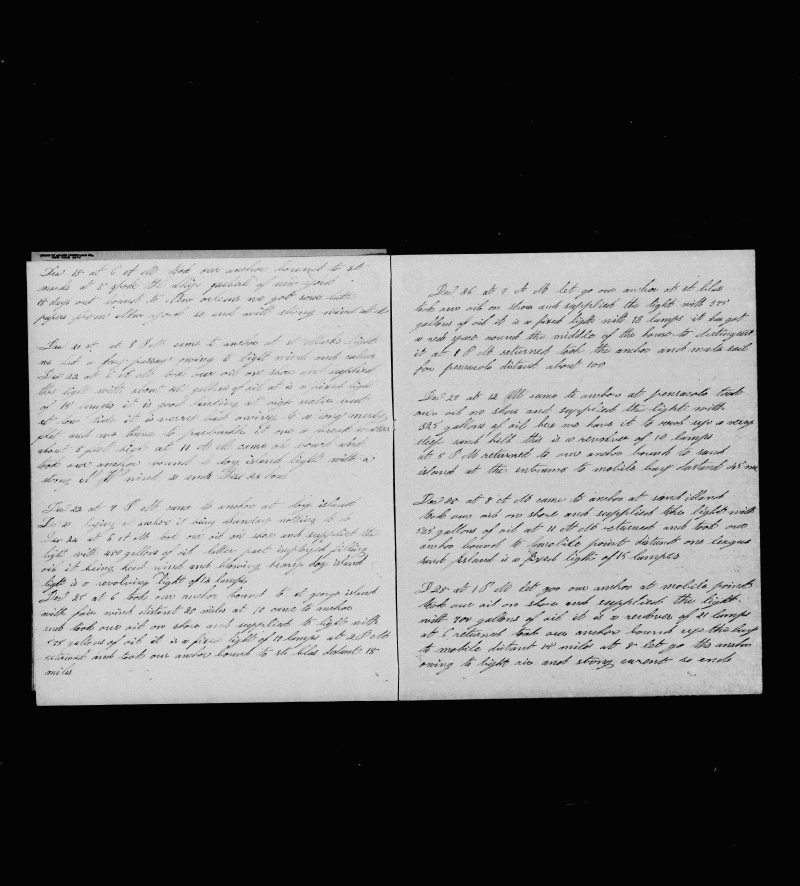 Dec 18 at 6 A M took our anchor bound to st
marks at 8 spoke the ship of new york
18 days out bound to New orleans we got some late
papers from New york so ends with strong wind
at 8 P M came to anchor at st Marks light
we had a long passage owing to light wind and calms
Dec 22 at 6 A M took our oil on shore and supplied
the light with about gallons of oil it is a fixed light
of 15 it is good landing at high water but
at low tide it is verry bad owing to a long muddy
flat and we have to it over a
about 8 feet high at 11 A M came on board and
took our anchor bound to dog island light with a
strong wind so ends this 24 hours
Dec 23 at 7 P M came to anchor at dog island
Dec lying a anchor it being nothing to do
Dec 24 at 6 A M took our oil on shore and supplied the
light with 450 gallons of oil latter part employed filling
oil it being head wind and blowing heavy dog island
light is a revolving light of 14 lamps
Dec 25 at 6 took our anchor bound to st george island
with fair wind distant 20 miles at 10 came to anchor
and took our oil on shore and supplied to light with
475 gallons of oil it is a fixed light of 13 lamps at 2 P M
returned and took our anchor bound to st blas distant 18
miles
Dec 26 at 7 A M let go our anchor at st blas
took our oil on shore and supplied the light with 375
gallons of oil it is a fixed light with 13 lamps it has got
a red round the middle of the house to distinguish
it at 1 P M returned took the anchor and made sail
for pensacola distant about 100
Dec 27 at 12 M came to anchor at pensacola took
our oil on shore and supplied the light with
525 gallons of oil here we have it to up a verry
steep sand hill this is a revolver of 10 lamps
at 5 P M returned to our anchor bound to sand
island at the entrance to mobile bay distant 45 m
Dec 28 at 8 A M came to anchor at sand island
took our oil on shore and supplied the light with
525 gallons of oil at 11 A M returned and took our
anchor bound to mobile point distant one league
sand island is a fixed light of 15 lamps
Dec 28 at 1 P M let go our anchor at mobile point
took our oil on shore and supplied the light
with 700 gallons of oil it is a revolver of 21 lamps
at 6 returned took our anchor bound up the bay
to mobile distant miles at 8 let go the anchor
owing to light air and strong current so ends